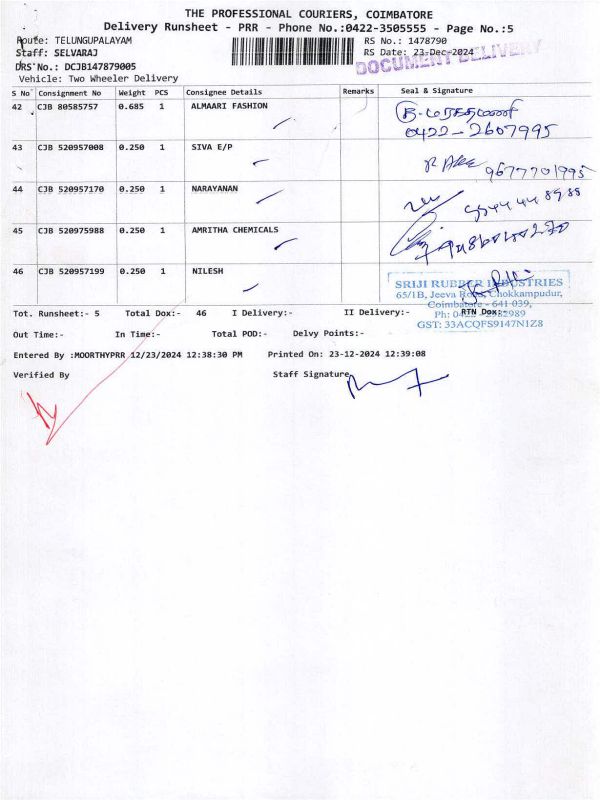 THE PROFESSIONAL COURIERS, COIMBATORE
Delivery Runsheet - PRR - Phone No.:0422-3505555 - Page No.:5
Route: TELUNGUPALAYAM RS No.: 1478790
Staff: SELVARAJ RS Date: 23-Dec-2024
DOCUMENT DELIVERY
DRS No.: DCJB147879005
Vehicle: Two Wheeler Delivery
S No Consignment No Weight PCS Consignee Details Remarks Seal & Signature
42 CJB 80585757 0.685 1 ALMAARI FASHION
0422-2607995
43 CJB 520957008 0.250 1 SIVA E/P
9677701995
44 CJB 520957170 0.250 1 NARAYANAN
45 CJB 520975988 0.250 1 AMRITHA CHEMICALS
46 CJB 520957199 0.250 1 NILESH
SRIJI RUBBER INDUSTRIES
65/1B, Jeeva Road, Chokkampudur,
Coimbatore - 641 039,
Tot. Runsheet:- 5 Total Dox:- 46 I Delivery:- II Delivery:- RTN Dox:-
GST: 33ACQFS9147N1Z8
Out Time:- In Time:- Total POD:- Delvy Points:-
Entered By :MOORTHYPRR 12/23/2024 12:38:30 PM Printed On: 23-12-2024 12:39:08
Verified By Staff Signature